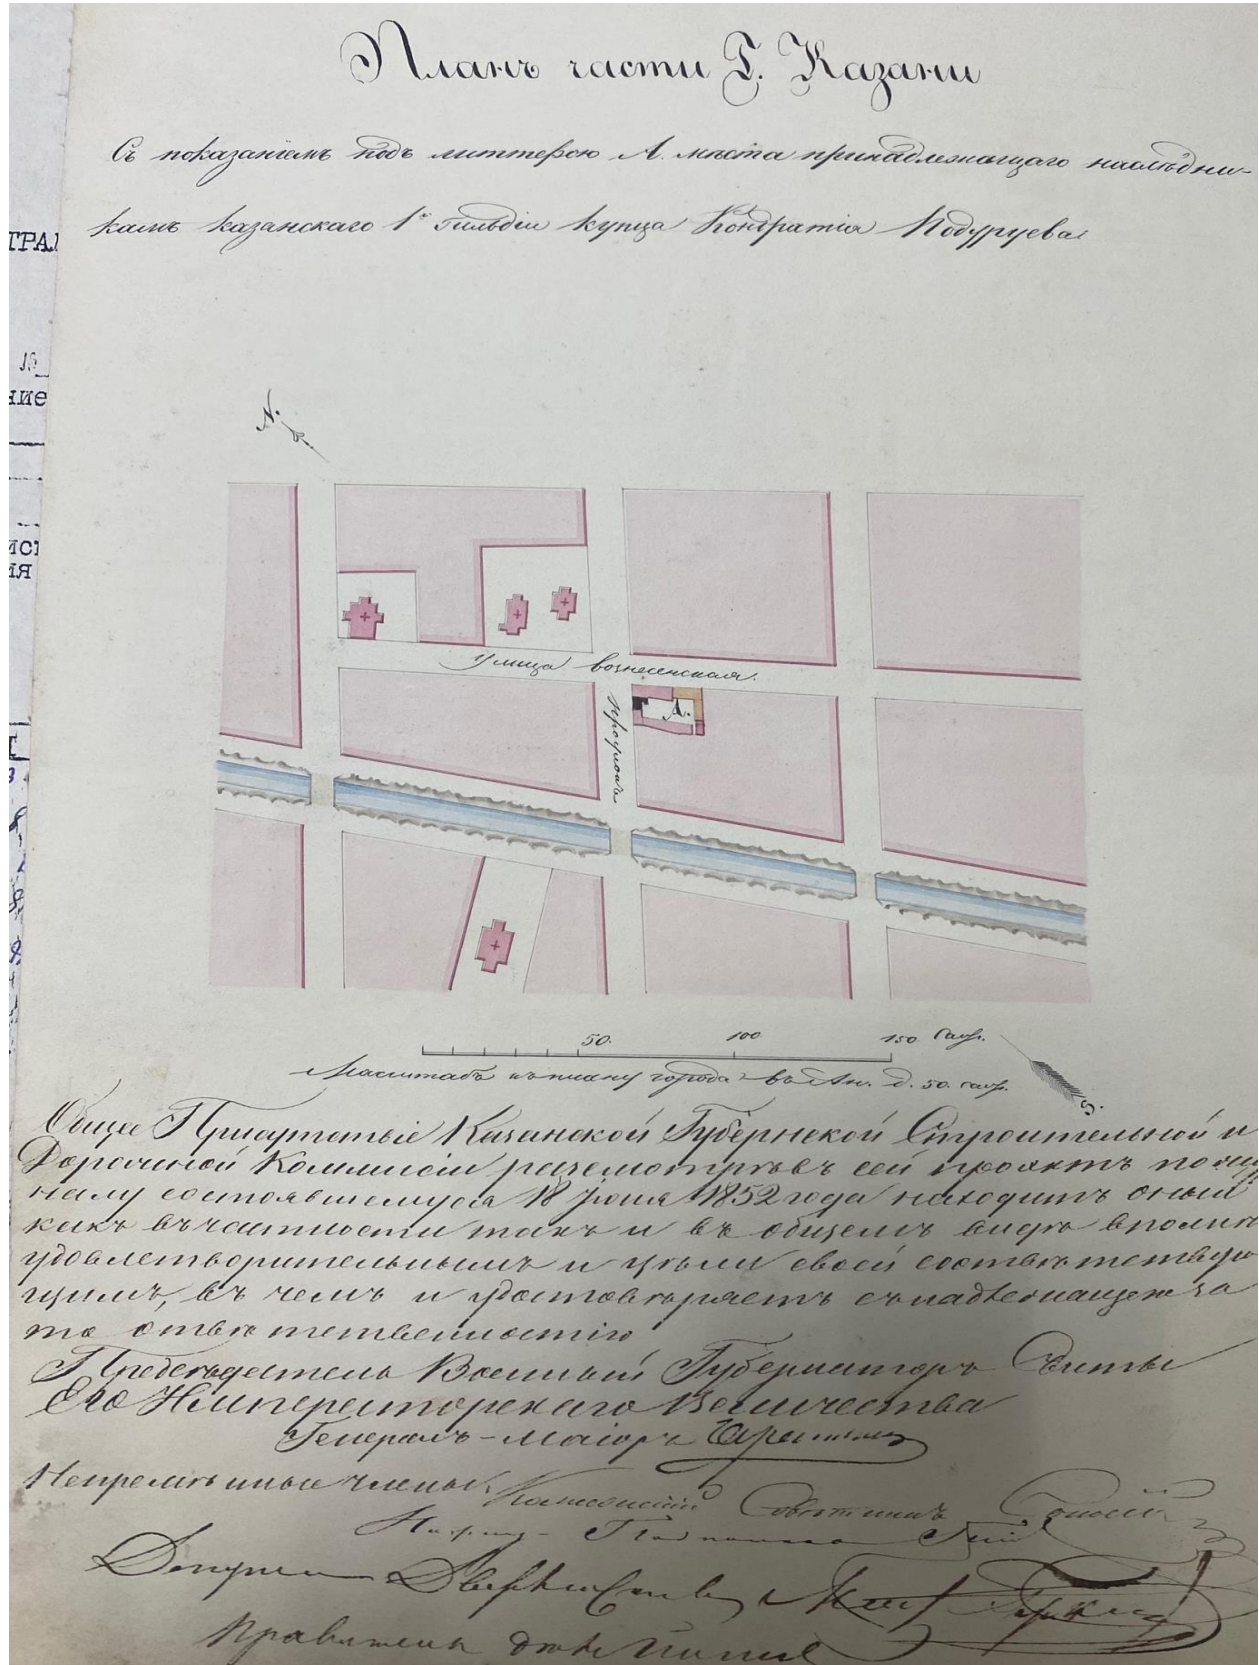 Планъ части Г. Казани
Съ показаніемъ подъ литтерою А. мѣста принадлежащаго наслѣдни-
камъ казанскаго 1й гильдіи купца Кондратія Кодуруева
ТРАЛ
№
ние
N.
улица вознесенская.
А.
50. 100 150 саж.
Масштабъ къ плану города въ Ан. д. 50. саж.
S.
Общее Присутствіе Казанской Губернской Строительной и
Дорожной Коммисіи разсмотрѣвъ сей проэктъ по жур
налу состоявшемуся 18 Іюня 1852 года находитъ оный
какъ въ частности такъ и въ общемъ видѣ вполнѣ
удовлетворительнымъ и цѣли своей соотвѣтствую
щимъ, въ чемъ и удостовѣряетъ съ надлежащею за
то отвѣтственностію
Предсѣдатель Военный Губернаторъ Свиты
Его Императорскаго Величества
Генералъ-Маіоръ
Непремѣнные члены:
Совѣтникъ
Правитель дѣлъ